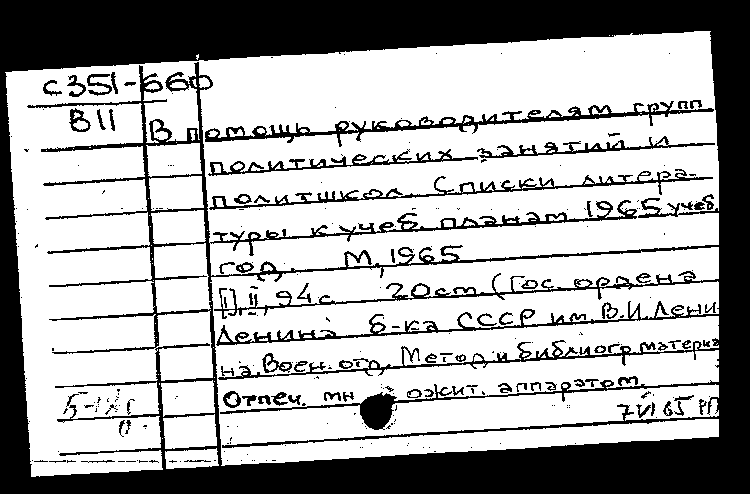 С351-660
В11
В помощь руководителям групп
политических занятий и
политшкол. Списки литера-
туры к учеб. планам 1965 учеб.
год. М, 1965
[I], II, 94с 20см. (Гос. ордена
Ленина б-ка СССР им. В.И. Лени
на. Воен. отд. Метод и библиогр. материа
Отпеч. мн ожит. аппаратом.
7 VI 65 РП